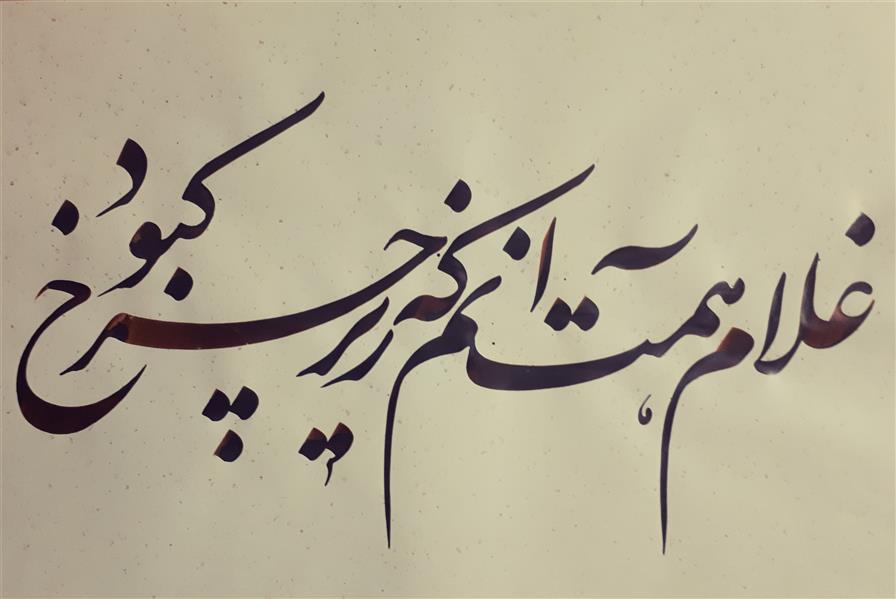 غلام همت آنم که زیر چرخ کبود